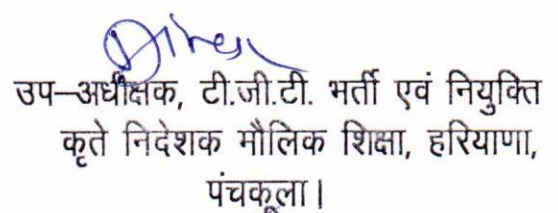 उप–अधीक्षक, टी.जी.टी. भर्ती एवं नियुक्ति
कृते निदेशक मौलिक शिक्षा, हरियाणा,
पंचकूला।